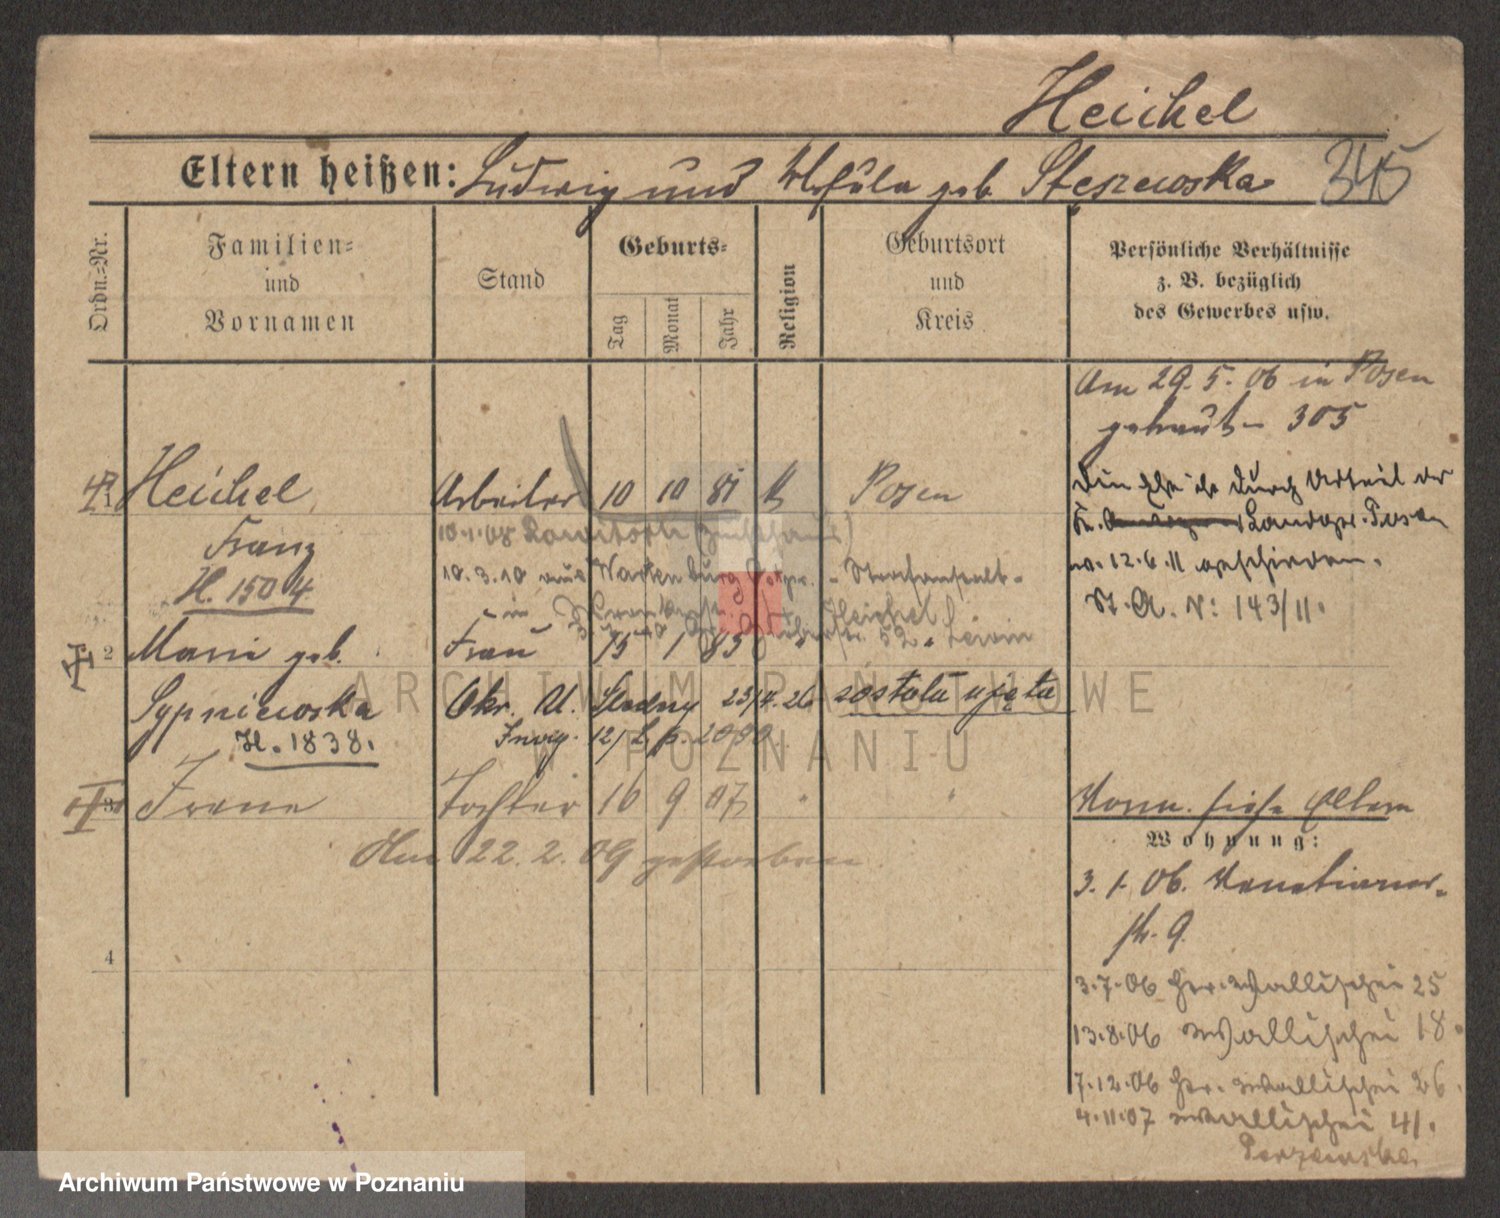 Heichel
Eltern heißen: Ludwig und Ursula geb. Steszewska 345
Ordn.-Nr.
Familien- und Vornamen
Stand
Geburts-
Tag
Monat
Jahr
Religion
Geburtsort und Kreis
Persönliche Verhältnisse
z. B. bezüglich
des Gewerbes usw.
Am 29.5.06 in Posen
getraut 305
1 Heichel Arbeiter 10 10 81 k Posen
Franz
H. 1504
10.1.08 Rawitsch (Zuchthaus)
10.3.10 aus Wartenburg Ostpr. - Strafanstalt -
Die Ehe ist durch Urteil des
Landger. Posen
v. 12.6.11 geschieden.
St. A. N: 143/11.
2 Marie geb. Frau 15 1 83 "
Sypniewska
H. 1838.
Okr. U. Śledczy 23/4.26 została ujęta
12/
3 Irene Tochter 16 9 07 " "
Am 22.2.09 gestorben
Vorm. siehe Eltern
Wohnung:
3.1.06. Venetianer-
str. 9
3.7.06 Hr. Wallischei 25
13.8.06 Wallischei 18.
7.12.06 Hr. Wallischei 26.
4.11.07 Wallischei 41.
4
ARCHIWUM PAŃSTWOWE
W POZNANIU
Archiwum Państwowe w Poznaniu